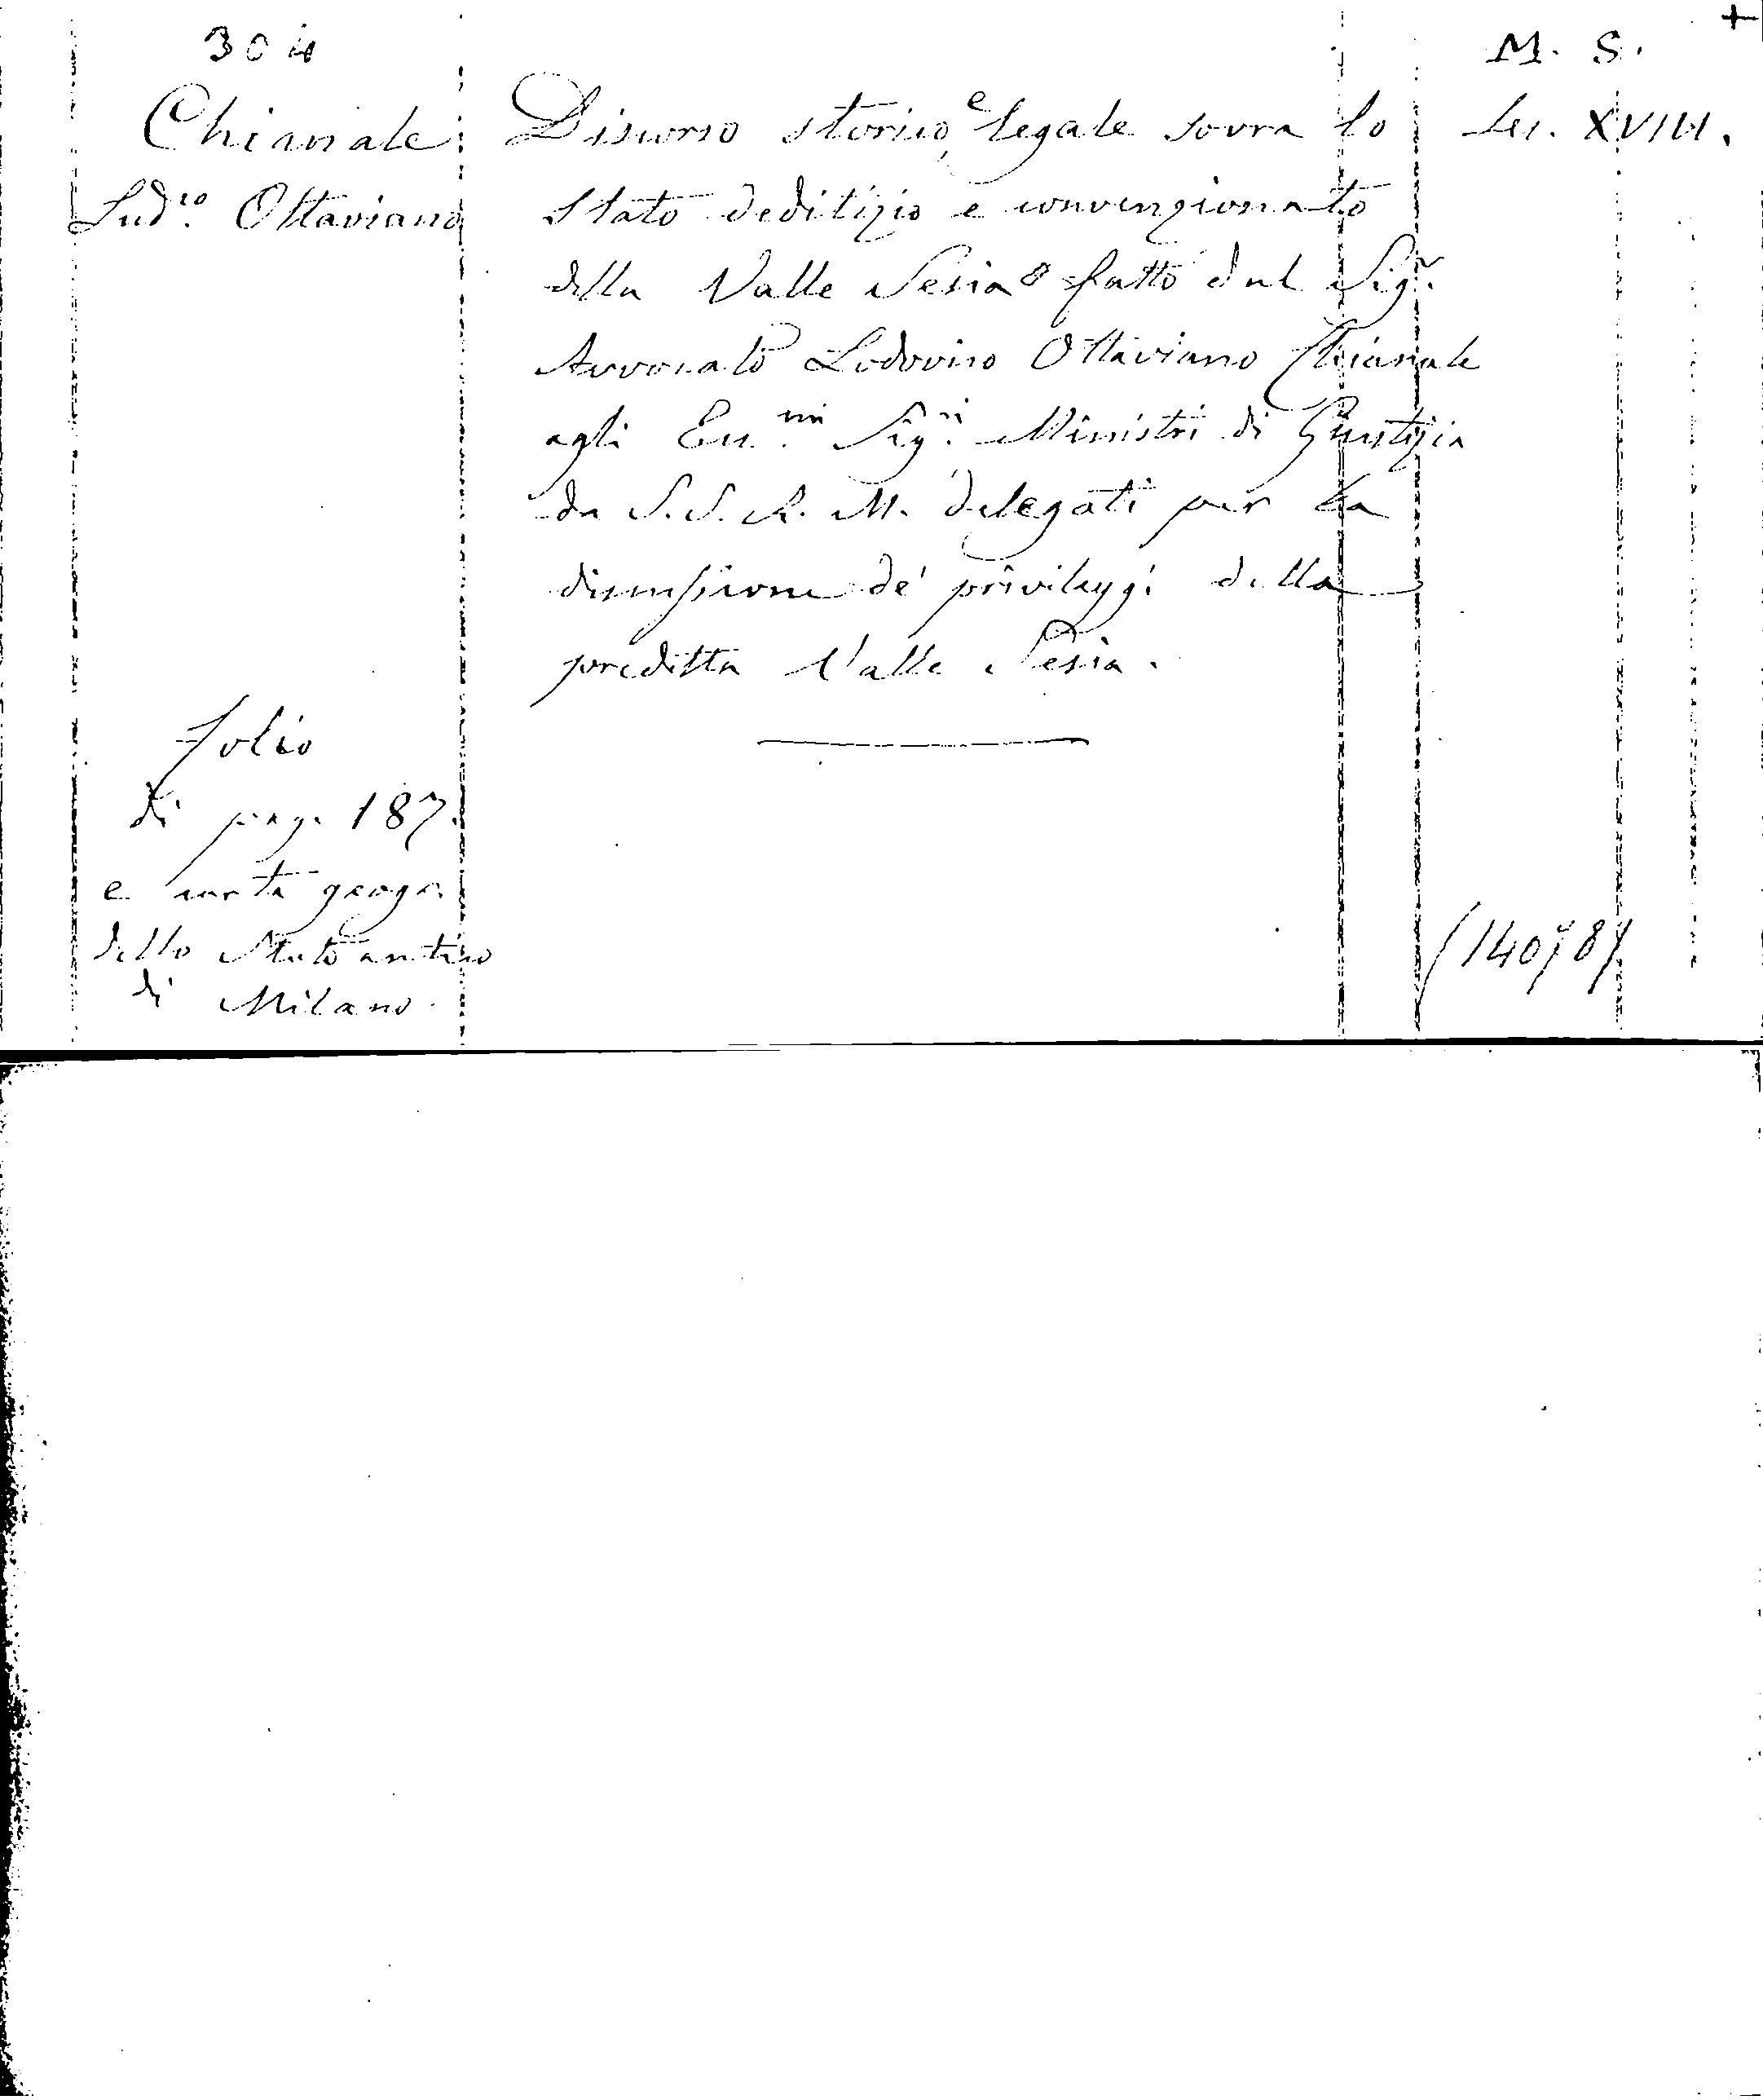 304
M. S. +
Chianale
Lud.co Ottaviano
Discorso storico e legale sovra lo
stato deditizio e convenzionato
della Valle Sesia fatto dal Sig.r
Avvocato Lodovico Ottaviano Chianale
agli Ecc.mi Sig.ri Ministri di Giustizia
da S. S. R. M. delegati per la
discussione de' privileggi della
preditta Valle Sesia.
Sec. XVIII.
folio
di pag. 187.
e carta geogr.
dello Stato antico
di Milano.